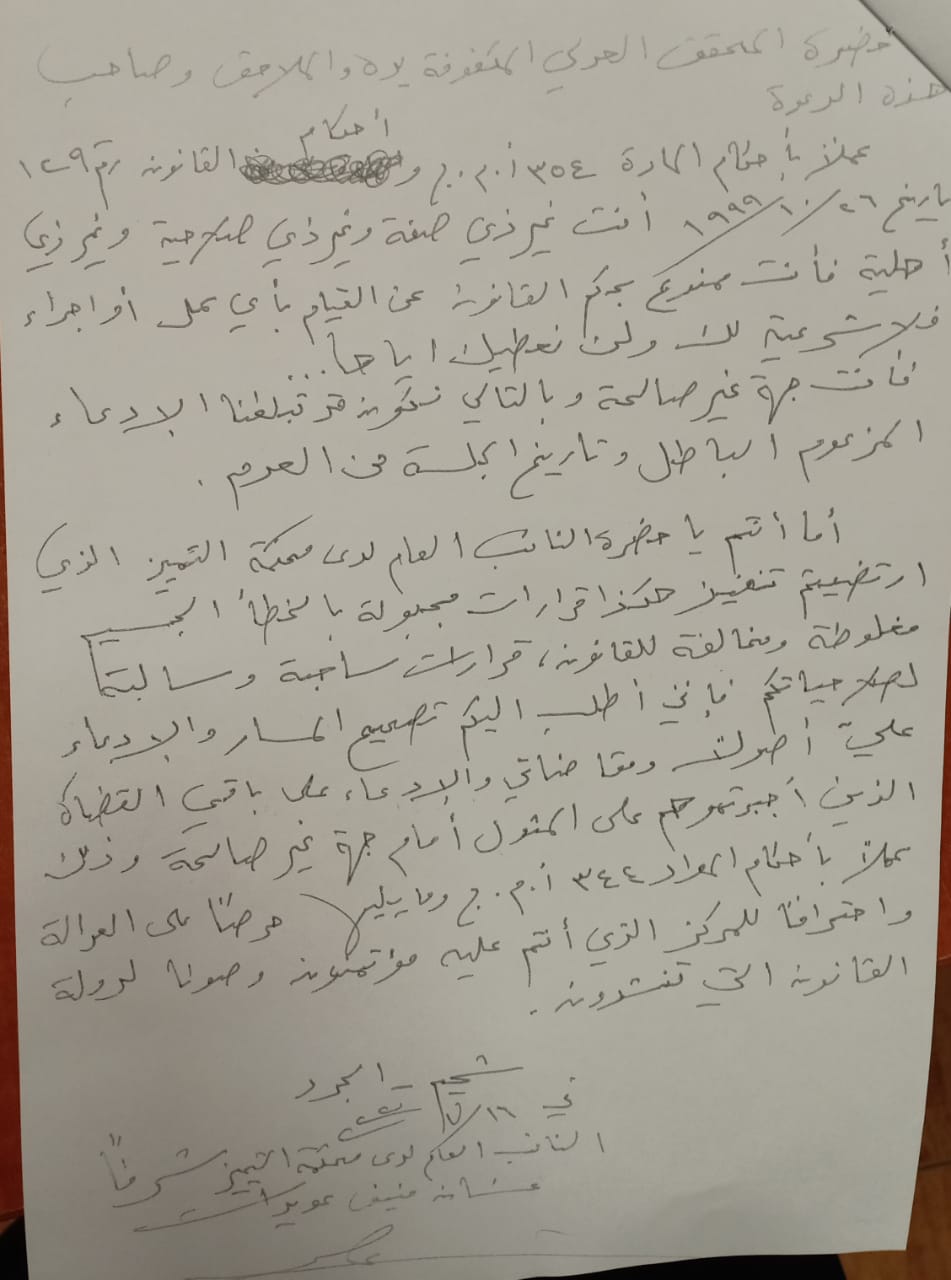 حضرة المحقق العدلي المكفوفة يده والملاحق وصاحب
هذه الدعوة
أحكام
عملاً بأحكام المادة ٣٥٤ أ.م.ج و القانون رقم ١٢٩
تاريخ ٢٦/١٠/١٩٩٩ أنت غير ذي صفة وغير ذي صلاحية وغير ذي
أهلية فأنت ممنوع بحكم القانون عن القيام بأي عمل أو اجراء
فلا شرعية لك ولن نعطيك اياها...
فأنت جهة غير صالحة وبالتالي نكون قد تبلغنا الادعاء
المزعوم الباطل وتاريخ الجلسة من العدم.
أما أنتم يا حضرة النائب العام لدى محكمة التمييز الذي
ارتضيتم تنفيذ هكذا قرارات مجبولة بالخطأ الجسيم
مغلوطة ومخالفة للقانون، قرارات ساحبة وسالبة
لصلاحياتكم فإنني أطلب اليكم تصحيح المسار والادعاء
عليّ أصولاً ومقاضاتي والادعاء على باقي القضاة
الذين أجبرتموهم على المثول أمام جهة غير صالحة وذلك
عملاً بأحكام المواد ٣٤٤ أ.م.ج وما يليها حرصاً على العدالة
واحتراماً للمركز الذي أنتم عليه مؤتمنون وصونا لدولة
القانون التي تنشدون.
شحيم - الجرد
في
النائب العام لدى محكمة التمييز شرفاً
غسان منيف عويدات